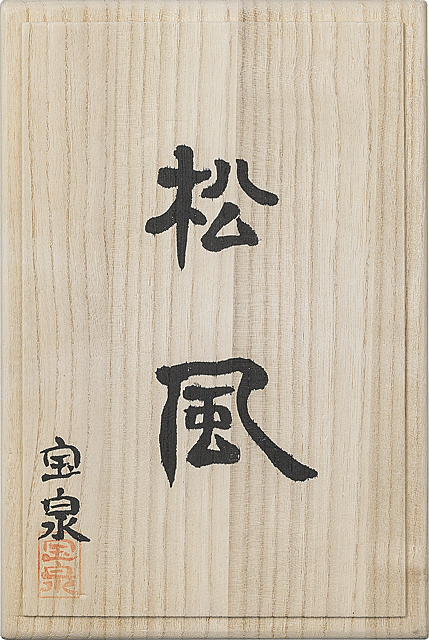 松風
宝泉
宝泉